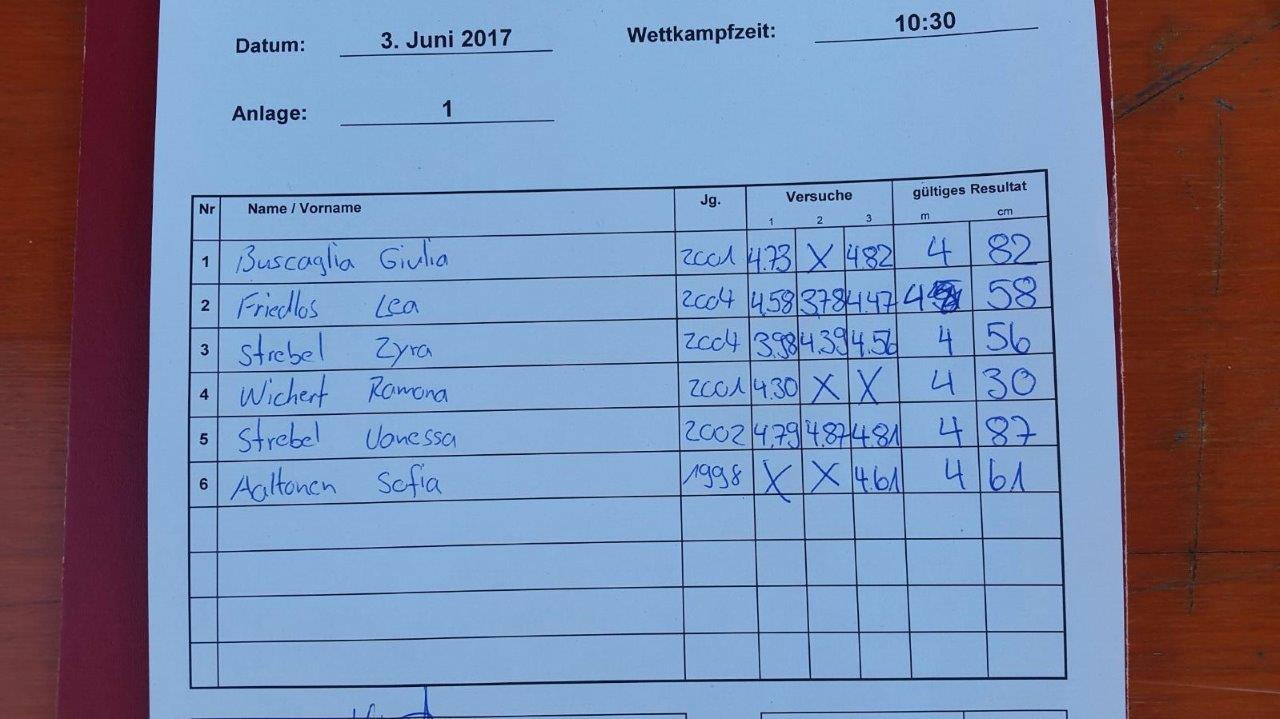 Datum: 3. Juni 2017 Wettkampfzeit: 10:30
Anlage: 1
Nr Name / Vorname Jg. Versuche gültiges Resultat
1 2 3 m cm
1 Buscaglia Giulia 2001 4.73 X 4.82 4 82
2 Friedlos Lea 2004 4.58 3.78 4.47 4 58
3 Strebel Zyra 2004 3.98 4.39 4.56 4 56
4 Wichert Ramona 2001 4.30 X X 4 30
5 Strebel Vanessa 2002 4.79 4.87 4.81 4 87
6 Aaltonen Sofia 1998 X X 4.61 4 61